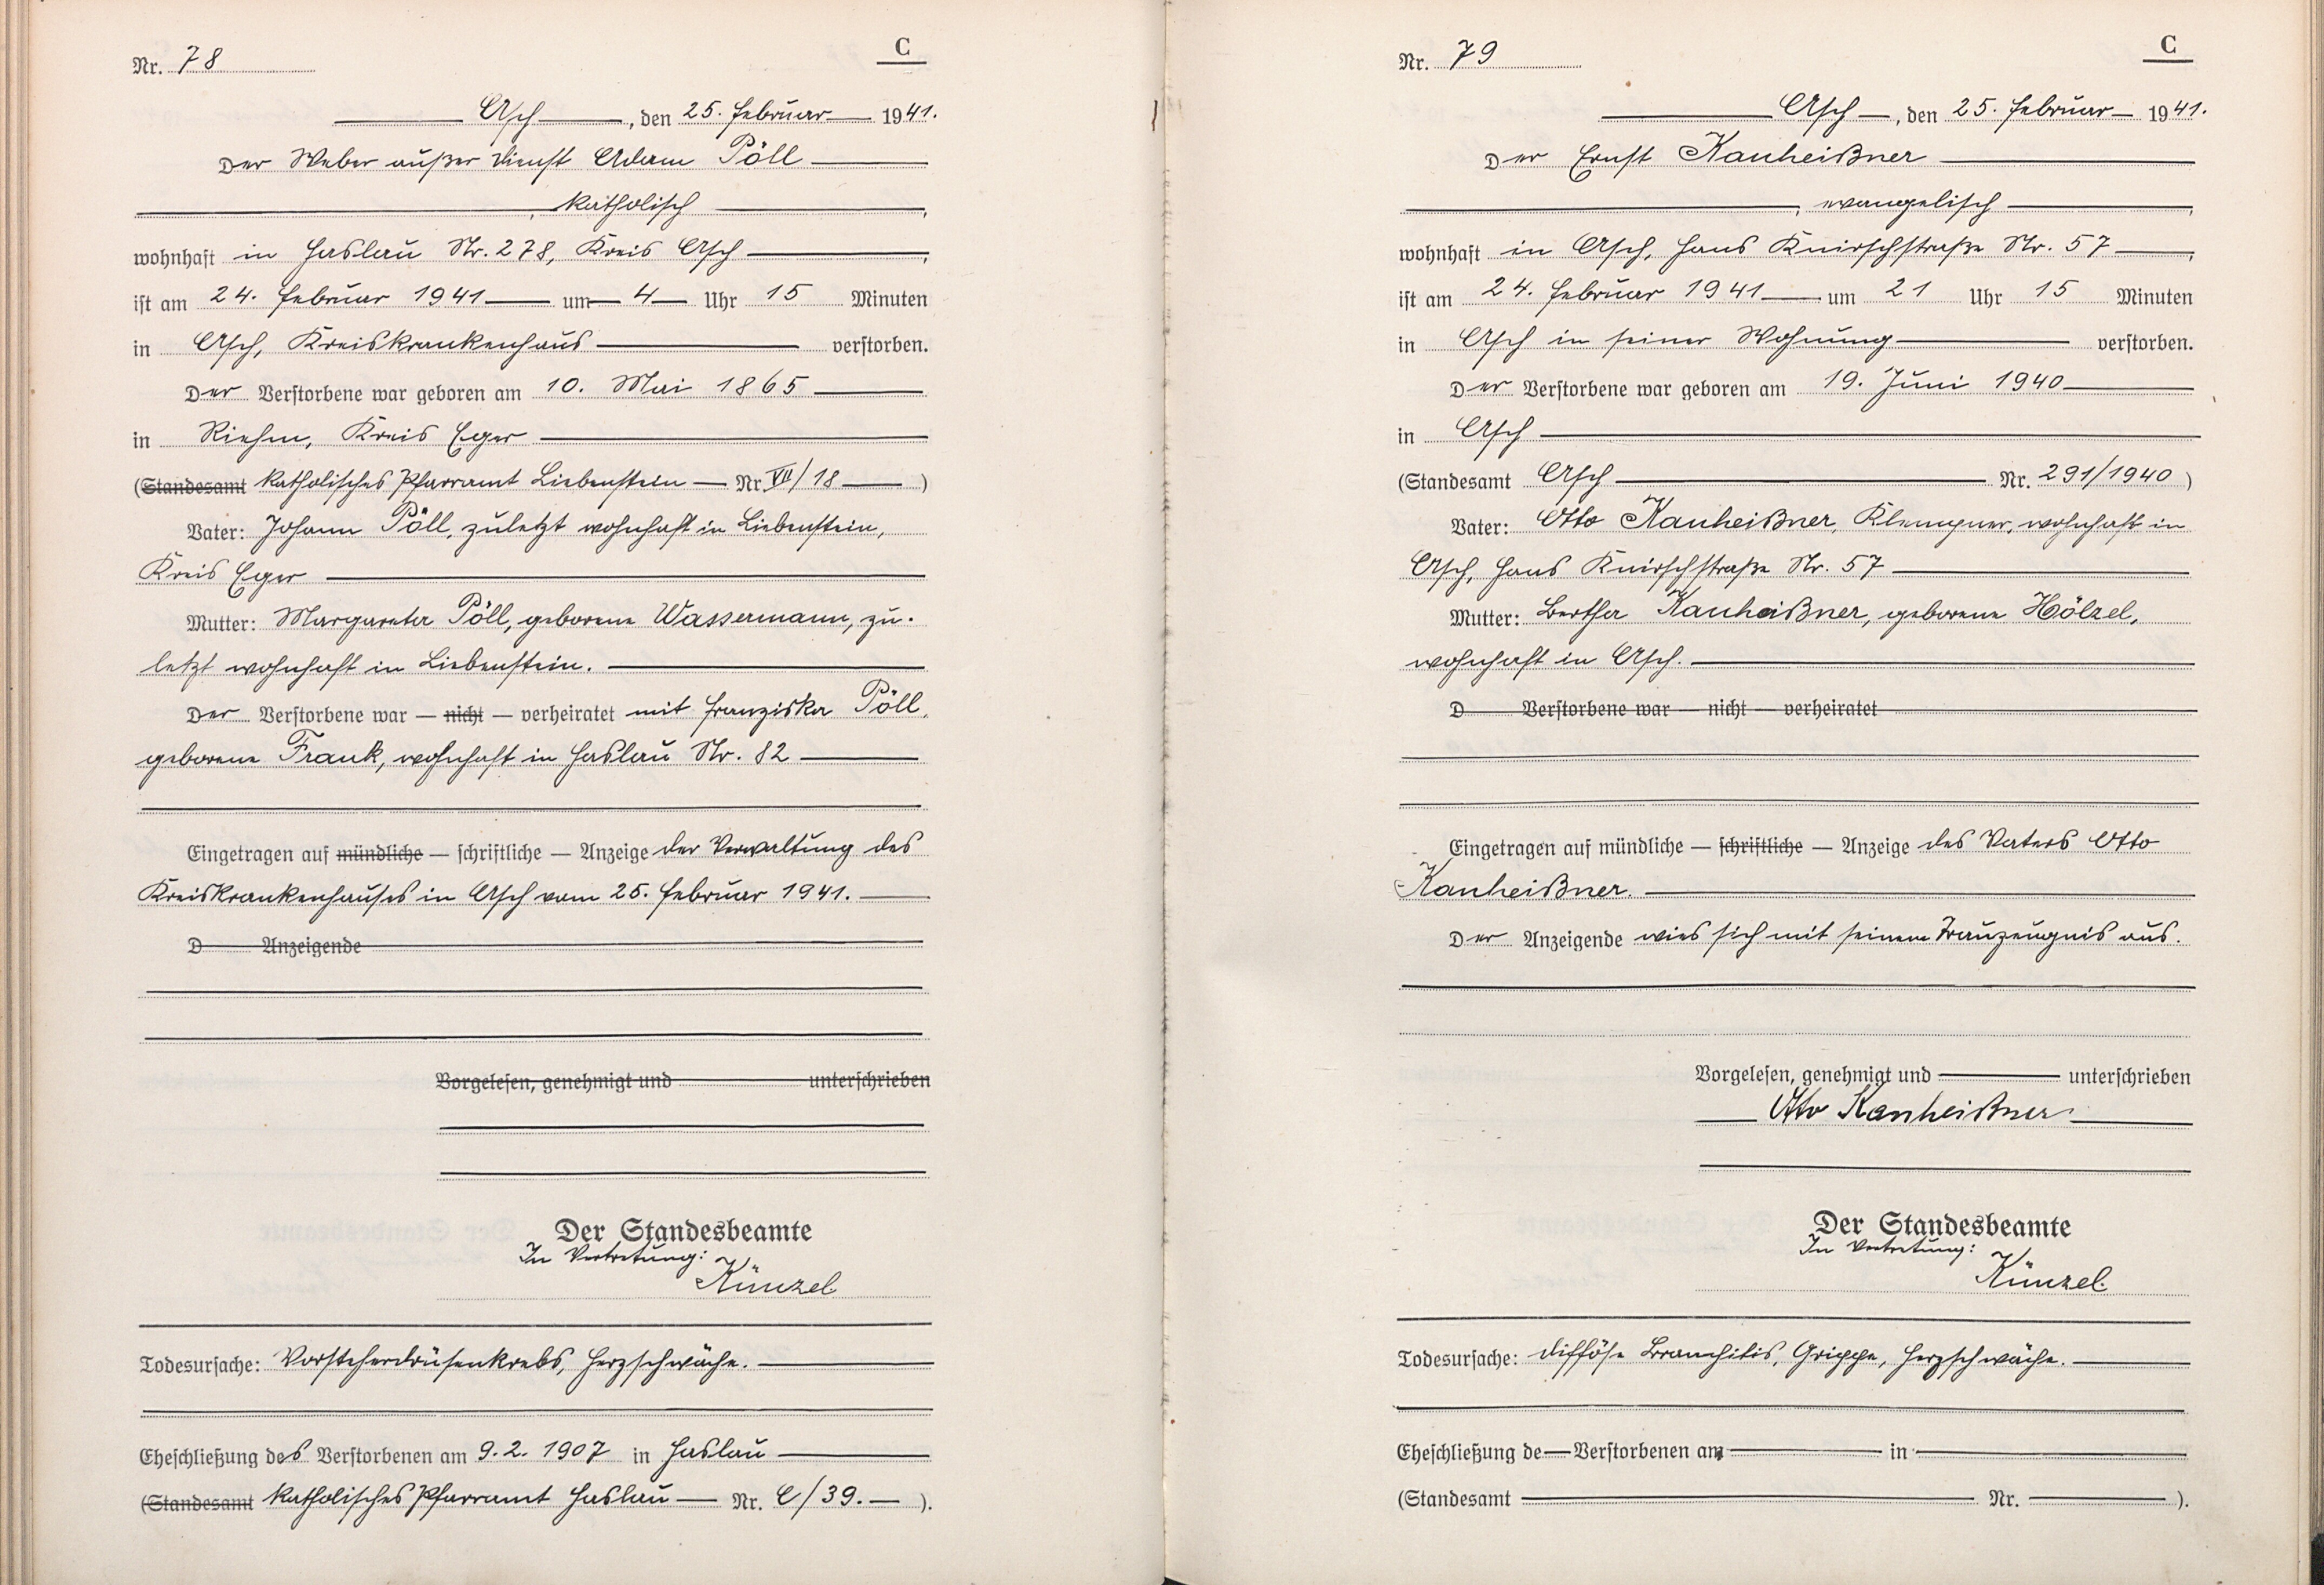 C
Nr. 78
Asch, den 25. Februar 1941.
Der Weber außer Dienst Adam Pöll
, katholisch,
wohnhaft in Haslau Nr. 278, Kreis Asch,
ist am 24. Februar 1941 um 4 Uhr 15 Minuten
in Asch, Kreiskrankenhaus verstorben.
Der Verstorbene war geboren am 10. Mai 1865
in Riehm, Kreis Eger
(Standesamt katholisches Pfarramt Liebenstein Nr. VII/18)
Vater: Johann Pöll, zuletzt wohnhaft in Liebenstein,
Kreis Eger
Mutter: Margareta Pöll, geborene Wassermann, zu-
letzt wohnhaft in Liebenstein.
Der Verstorbene war — nicht — verheiratet mit Franziska Pöll,
geborene Frank, wohnhaft in Haslau Nr. 82
Eingetragen auf mündliche — schriftliche — Anzeige der Verwaltung des
Kreiskrankenhauses in Asch vom 25. Februar 1941.
D Anzeigende
Vorgelesen, genehmigt und unterschrieben
Der Standesbeamte
In Vertretung:
Künzel
Todesursache: Vorsteherdrüsenkrebs, Herzschwäche.
Eheschließung des Verstorbenen am 9.2.1907 in Haslau
(Standesamt katholisches Pfarramt Haslau Nr. C/39.).
C
Nr. 79
Asch, den 25. Februar 1941.
Der Ernst Kanheißner
, evangelisch,
wohnhaft in Asch, Hans Knirschstraße Nr. 57,
ist am 24. Februar 1941 um 21 Uhr 15 Minuten
in Asch in seiner Wohnung verstorben.
Der Verstorbene war geboren am 19. Juni 1940
in Asch
(Standesamt Asch Nr. 291/1940)
Vater: Otto Kanheißner, Klempner, wohnhaft in
Asch, Hans Knirschstraße Nr. 57
Mutter: Bertha Kanheißner, geborene Hölzel,
wohnhaft in Asch.
D Verstorbene war — nicht — verheiratet
Eingetragen auf mündliche — schriftliche — Anzeige des Vaters Otto
Kanheißner.
Der Anzeigende wies sich mit seinem Trauzeugnis aus.
Vorgelesen, genehmigt und unterschrieben
Otto Kanheißner
Der Standesbeamte
In Vertretung:
Künzel.
Todesursache: diffuse Bronchitis, Grippe, Herzschwäche.
Eheschließung de Verstorbenen am in
(Standesamt Nr. ).